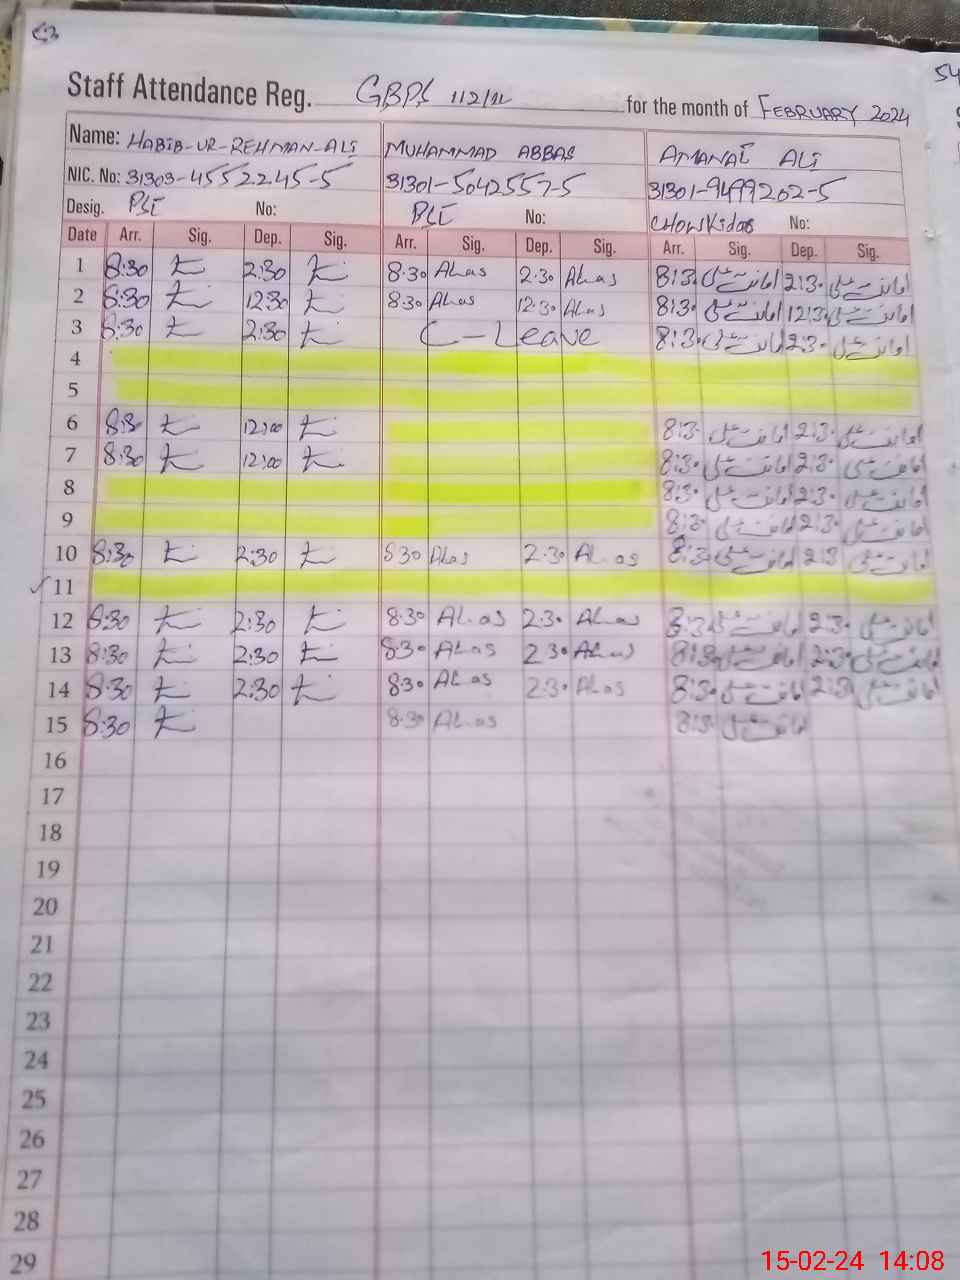 53
54
Staff Attendance Reg. GBPS 112/1L for the month of FEBRUARY 2024
Name: HABIB-UR-REHMAN-ALI MUHAMMAD ABBAS AMANAT ALI
NIC. No: 31303-4552245-5 31301-5042557-5 31301-9499202-5
Desig. PST No: PST No: CHOWKidar No:
Date Arr. Sig. Dep. Sig. Arr. Sig. Dep. Sig. Arr. Sig. Dep. Sig.
1 8:30 2:30 8:30 Abbas 2:30 Abbas 8:30 امانت علی 2:30 امانت علی
2 8:30 12:30 8:30 Abbas 12:30 Abbas 8:30 امانت علی 12:30 امانت علی
3 8:30 2:30 C-Leave 8:30 امانت علی 2:30 امانت علی
4
5
6 8:30 12:00 8:30 امانت علی 2:30 امانت علی
7 8:30 12:00 8:30 امانت علی 2:30 امانت علی
8 8:30 امانت علی 2:30 امانت علی
9 8:30 امانت علی 2:30 امانت علی
10 8:30 2:30 8:30 Abbas 2:30 Abbas 8:30 امانت علی 2:30 امانت علی
11
12 8:30 2:30 8:30 Abbas 2:30 Abbas 8:30 امانت علی 2:30 امانت علی
13 8:30 2:30 8:30 Abbas 2:30 Abbas 8:30 امانت علی 2:30 امانت علی
14 8:30 2:30 8:30 Abbas 2:30 Abbas 8:30 امانت علی 2:30 امانت علی
15 8:30 8:30 Abbas 8:30 امانت علی
16
17
18
19
20
21
22
23
24
25
26
27
28
29
15-02-24 14:08